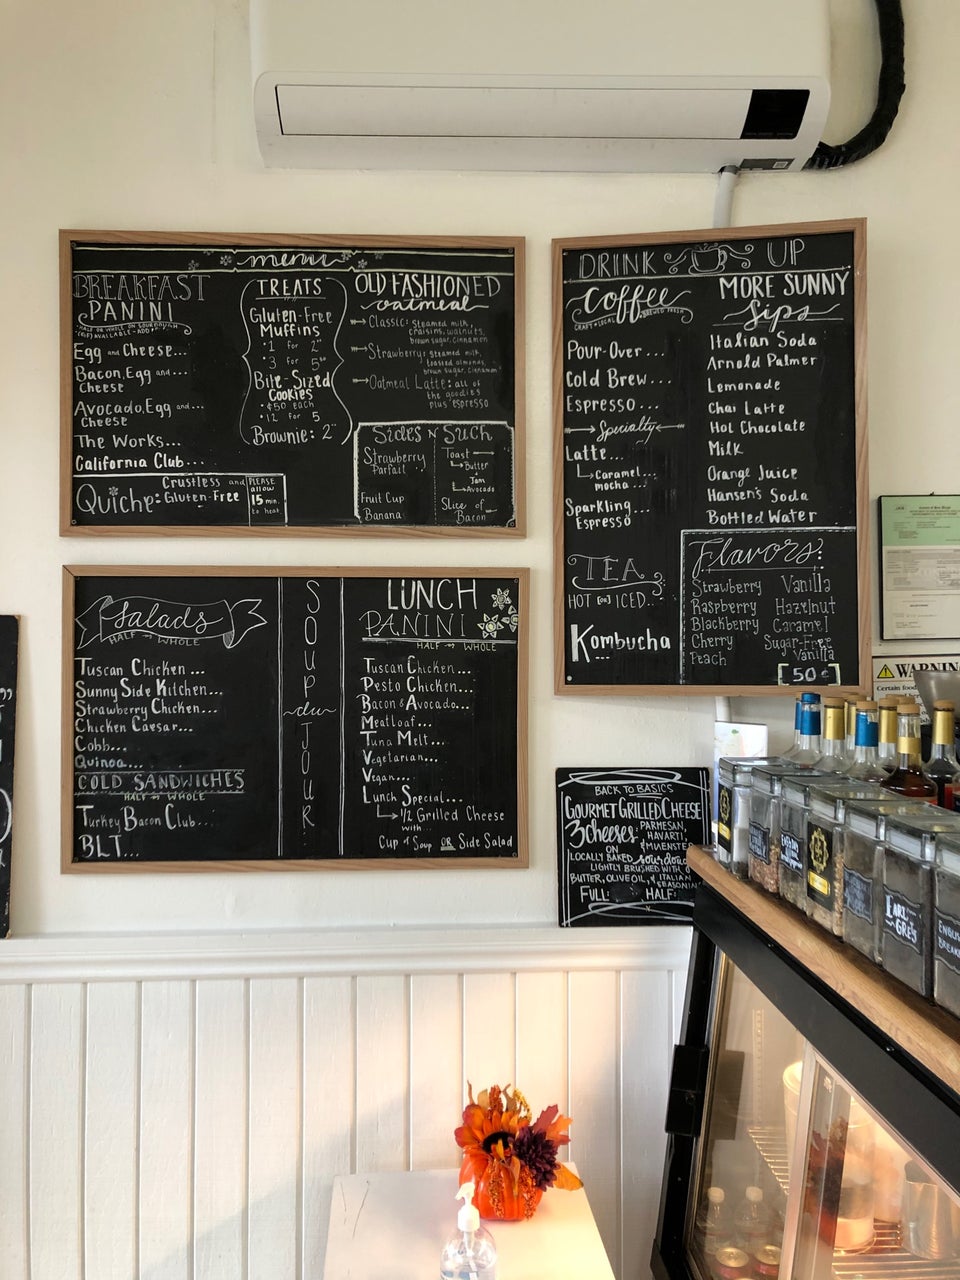 menu
BREAKFAST
PANINI
HALF OR WHOLE ON SOURDOUGH
Egg and Cheese...
Bacon, Egg and...
Cheese
Avocado, Egg and...
Cheese
The Works...
California Club...
Quiche: Crustless and
Gluten-Free
PLEASE
allow
15 min.
to heat
TREATS
Gluten-Free
Muffins
1 for 2
3 for 5
Bite-Sized
Cookies
$.50 each
12 for 5
Brownie: 2
OLD FASHIONED
oatmeal
Classic: steamed milk,
craisins, walnuts,
brown sugar, cinnamon
Strawberry: steamed
milk,
toasted almonds,
brown sugar, cinnamon
Oatmeal Latte: all of
the goodies
plus espresso
Sides N Such
Strawberry
Parfait
Fruit Cup
Banana
Toast
Butter
Jam
Avocado
Slice of
Bacon
DRINK UP
Coffee
CRAFT LOCAL BREWED FRESH
Pour-Over...
Cold Brew...
Espresso...
Specialty
Latte...
Caramel...
mocha...
Sparkling
Espresso
TEA
HOT [or] ICED...
Kombucha
...
MORE SUNNY
Sips
Italian Soda
Arnold Palmer
Lemonade
Chai Latte
Hot Chocolate
Milk
Orange Juice
Hansen's Soda
Bottled Water
Flavors:
Strawberry Vanilla
Raspberry Hazelnut
Blackberry Caramel
Cherry Sugar-Free
Peach Vanilla
[50¢]
Salads
HALF or WHOLE
Tuscan Chicken...
Sunny Side Kitchen...
Strawberry Chicken...
Chicken Caesar...
Cobb...
Quinoa...
COLD SANDWICHES
HALF or WHOLE
Turkey Bacon Club...
BLT...
SOUP
du
JOUR
LUNCH
PANINI
HALF or WHOLE
Tuscan Chicken...
Pesto Chicken...
Bacon & Avocado...
Meatloaf...
Tuna Melt...
Vegetarian...
Vegan...
Lunch Special...
1/2 Grilled Cheese
with...
Cup of Soup OR Side Salad
BACK TO BASICS
GOURMET GRILLED CHEESE
3 cheeses: PARMESAN,
HAVARTI,
& MUENSTER
ON
LOCALLY BAKED sourdough
LIGHTLY BRUSHED WITH
BUTTER, OLIVE OIL, & ITALIAN
SEASONING
FULL: HALF:
WARNING
Certain food
EARL
GREY
ENGLISH
BREAKFAST